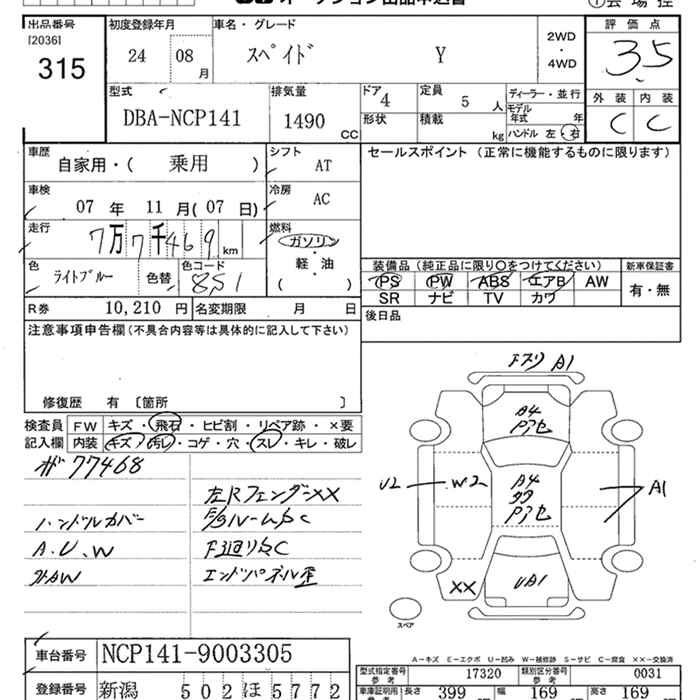 オークション出品申込書
出品番号 初度登録年月 車名・グレード 評価点
[2036]
315
24 08 月 スペイド Y 2WD・4WD 3.5
型式 排気量 ドア 定員 ディーラー・並行 外装 内装
DBA-NCP141 1490 CC 4 5 人 モデル年式 年 C C
形状 積載 kg ハンドル 左・右
車歴 シフト セールスポイント (正常に機能するものに限ります)
自家用・( 乗用 ) AT
車検 冷房
07 年 11 月 (07 日) AC
走行 燃料
7万7千469 km ガソリン
軽・油
( )
色 色替 色コード
ライトブルー 851
装備品 (純正品に限り○をつけてください) 新車保証書
PS PW ABS エアB AW 有・無
SR ナビ TV カワ
R券 10,210 円 名変期限 月 日 後日品
注意事項申告欄 (不具合内容等は具体的に記入して下さい)
修復歴 有 〔箇所 〕
検査員記入欄 FW キズ・飛石・ヒビ割・リペア跡・×要
内装 キズ・汚レ・コゲ・穴・スレ・キレ・破レ
77468
左Rフェンダーxx
ハンドルカバー
A.U.W
F廻りSC
エンドパネル歪
Fブリ A1
A4
Pアセ
U2 W2 A4 Pアセ A1
XX UA1
スペア
A-キズ E-エクボ U-凹み W-補修跡 S-サビ C-腐食 XX-交換済
車台番号 NCP141-9003305
型式指定番号 参考 17320 類別区分番号 参考 0031
登録番号 新潟 502 ほ 5772
車庫証明用 参考 長さ 399 幅 169 高さ 169